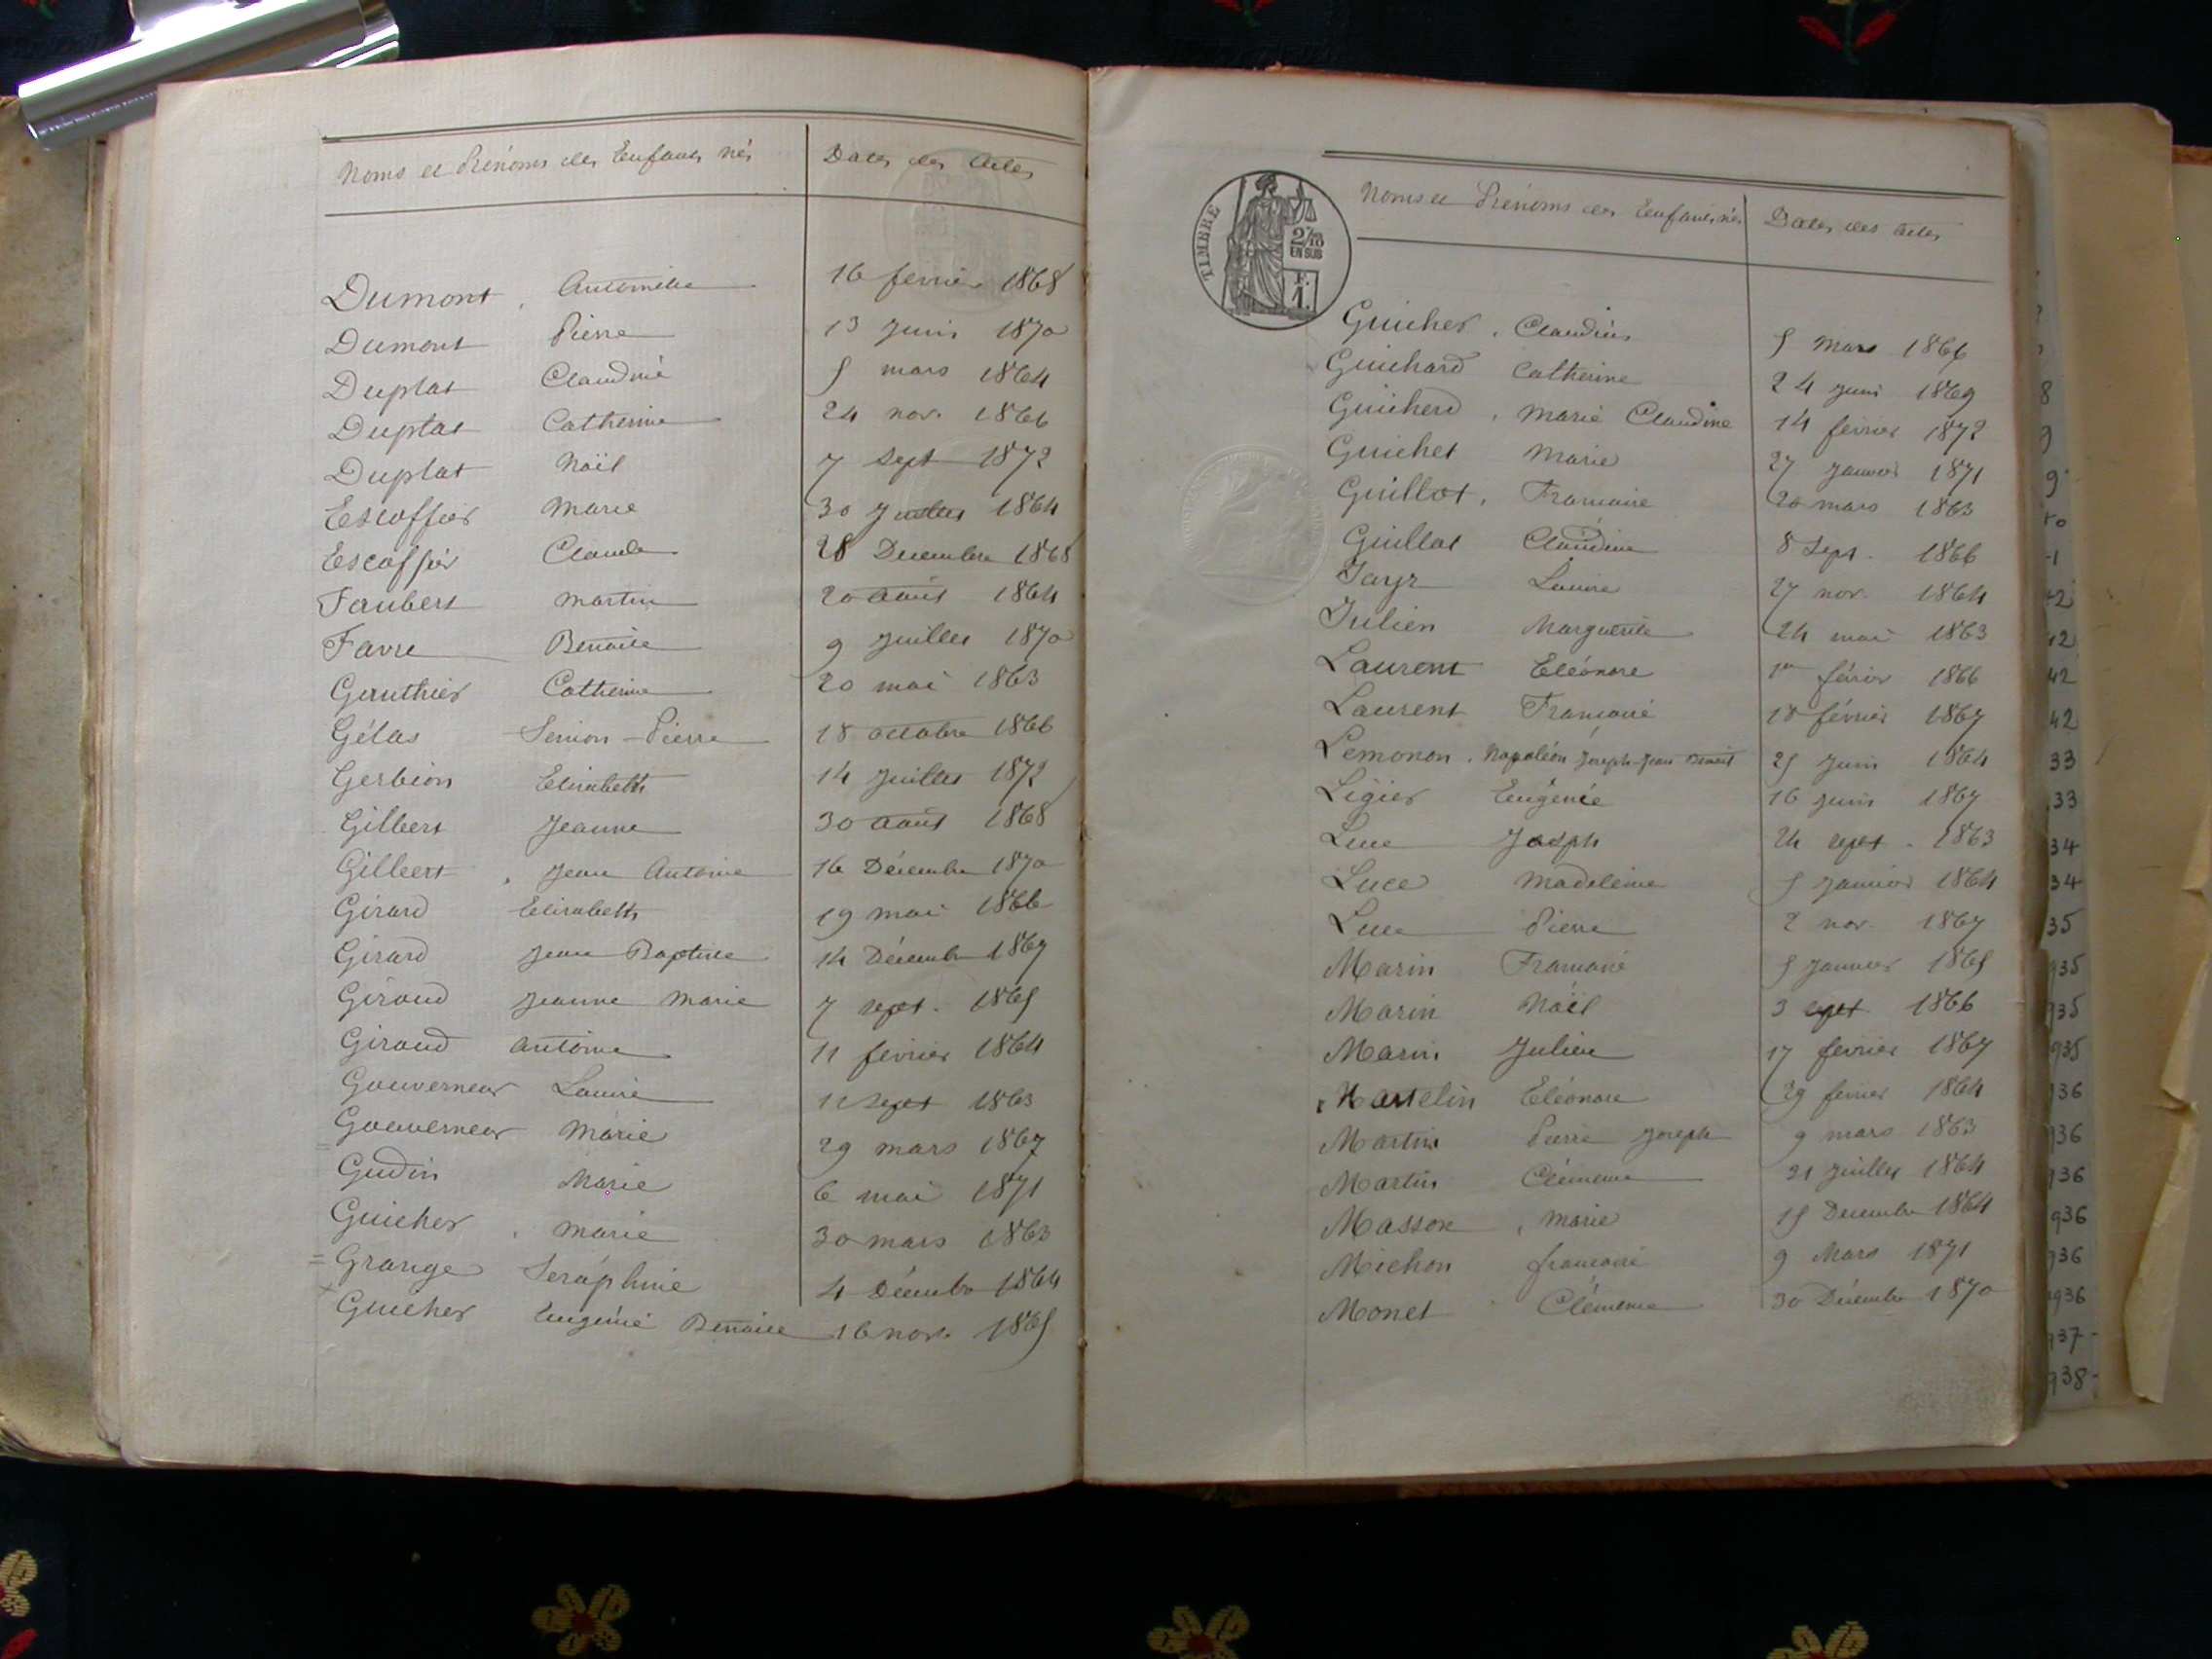 Noms et Prénoms des Enfants nés Dates des Actes
Dumont, Antoinette 16 fevrier 1868
Dumont Pierre 13 Juin 1870
Duplat Claudine 5 mars 1864
Duplat Catherine 24 nov. 1866
Duplat Noël 7 Sept 1872
Escoffier Marie 30 Juillet 1864
Escoffier Claude 28 Decembre 1868
Faubert Martin 20 août 1864
Favre Benoite 9 Juillet 1870
Gauthier Catherine 20 mai 1863
Gélas Simon-Pierre 18 octobre 1866
Gerbion Elisabeth 14 Juillet 1872
Gilbert Jeanne 30 août 1868
Gilbert, Jean Antoine 16 Décembre 1870
Girard Elisabeth 19 mai 1866
Girard Jean Baptiste 14 Décembre 1867
Giroud Jeanne Marie 7 sept. 1865
Giroud Antoine 11 février 1864
Gouverneur Louise sept 1863
Gouverneur Marie 29 mars 1867
Gudin Marie 6 mai 1871
Guicher, Marie 30 mars 1863
= Grange Seraphine 4 Décembre 1864
x Guicher Eugénie Benoite 16 nov. 1865
TIMBRE
2/10
EN SUS
F.
1.
Noms et Prénoms des Enfants nés Dates des Actes
Guicher, Claudius 5 Mars 1866
Guichard Catherine 24 Juin 1869
Guicherd, Marie Claudine 14 février 1872
Guichet Marie 27 Janvier 1871
Guillot, Francoise 20 mars 1863
Guillot Claudine 8 Sept. 1866
Jayr Louise 27 nov. 1864
Julien Marguerite 24 mai 1863
Laurent Eléonore 1er février 1866
Laurent Francoise 18 février 1867
Lemonon, Napoléon Joseph-Jean Benoit 25 Juin 1864
Ligier Eugénie 16 Juin 1867
Luce Joseph 24 sept. 1863
Luce Madeleine 5 Janvier 1864
Luce Pierre 2 nov. 1867
Marin Francoise 5 Janvier 1865
Marin Noël 3 sept 1866
Marin Julien 17 fevrier 1867
Martelin Eléonore 29 fevrier 1864
Martin Pierre Joseph 9 mars 1863
Martin Clémence 21 Juillet 1864
Masson, Marie 15 Decembre 1864
Michon francoise 9 Mars 1871
Monet Clémence 30 Décembre 1870
8
9
9
42
42
42
42
33
33
34
34
35
935
935
935
936
936
936
936
936
936
937-
938-